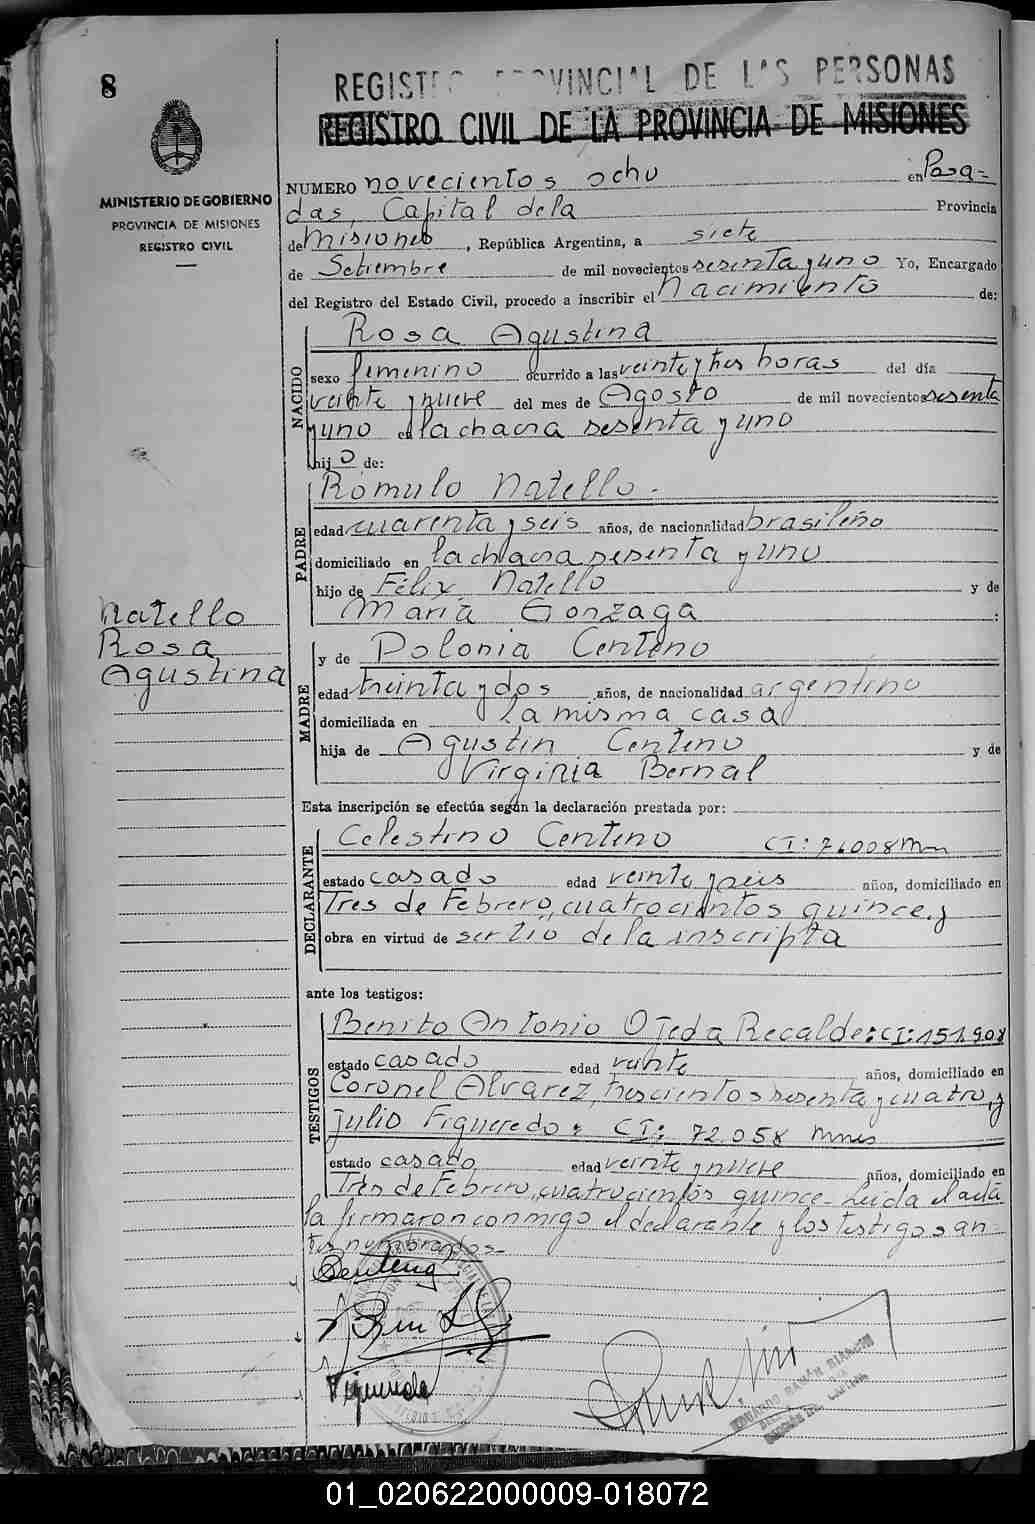 8
REGISTRO PROVINCIAL DE LAS PERSONAS
REGISTRO CIVIL DE LA PROVINCIA DE MISIONES
MINISTERIO DE GOBIERNO
PROVINCIA DE MISIONES
REGISTRO CIVIL
NUMERO novecientos ocho en Posa=
das, Capital de la Provincia
de Misiones, República Argentina, a siete
de Setiembre de mil novecientos sesenta y uno Yo, Encargado
del Registro del Estado Civil, procedo a inscribir el nacimiento de:
NACIDO
Rosa Agustina
sexo femenino ocurrido a las veinte y tres horas del día
veinte y nueve del mes de Agosto de mil novecientos sesenta
y uno en la chacra sesenta y uno
hij o de:
PADRE
Rómulo Natello.-
edad cuarenta y seis años, de nacionalidad brasileño
domiciliado en la chacra sesenta y uno
hijo de Félix Natello y de
María Gonzaga :
Natello
Rosa
Agustina
MADRE
y de Polonia Centeno
edad treinta y dos años, de nacionalidad argentino
domiciliada en la misma casa
hija de Agustín Centeno y de
Virginia Bernal
Esta inscripción se efectúa según la declaración prestada por:
DECLARANTE
Celestino Centeno CI: 76008
estado casado edad veinte y seis años, domiciliado en
Tres de Febrero, cuatrocientos quince, y
obra en virtud de ser tío de la inscripta
ante los testigos:
TESTIGOS
Benito Antonio Ojeda Recalde: CI: 151.908
estado casado edad veinte años, domiciliado en
Coronel Alvarez, trescientos sesenta y cuatro, y
Julio Figueredo: CI: 72.058 Mnes
estado casado edad veinte y nueve años, domiciliado en
Tres de Febrero, cuatrocientos quince.- Leída el acta
la firmaron conmigo el declarante y los testigos an-
tes nombrados.-
Centeno
Figueredo
01_020622000009-018072